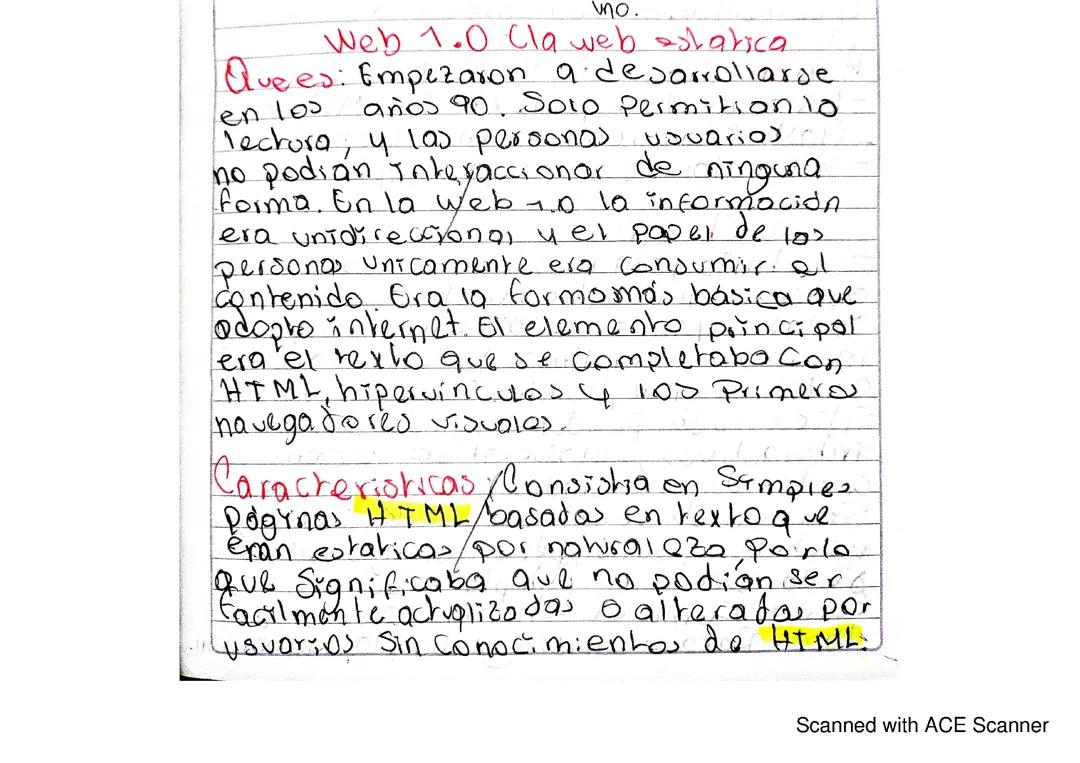 uno.
Web 1.0 (la web estatica
Que es: Empezaron a desarrollarse
en los años 90. Solo permitian lo
lectura, y las personas usuarios
no podián interaccionar de ninguna
forma. En la web 1.0 la información
era unidireccional y el papel de los
personas unicamente era consumir el
contenido. Era la forma más básica que
adopto internet. El elemento principal
era el texto que se completaba con
HTML, hipervinculos y los primeros
navegadores visuales.
Caracteristicas: Consistia en simples
páginas HTML basadas en texto que
eran estaticas por naturaleza, por lo
que significaba que no podián ser
facilmente actualizadas o alteradas por
usuarios sin conocimientos de HTML.
Scanned with ACE Scanner